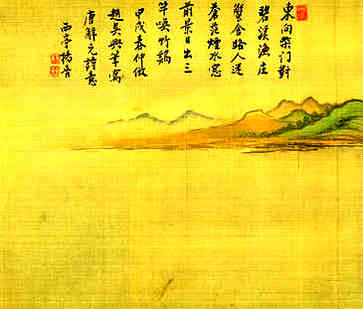 東向柴门對
碧溪渔庄
蟹舍路人迷
蒼茫煙水窓
前景日出三
竿喚竹鷄
甲戌春仲倣
趙吳興筆寫
唐解元詩意
西亭楊晉